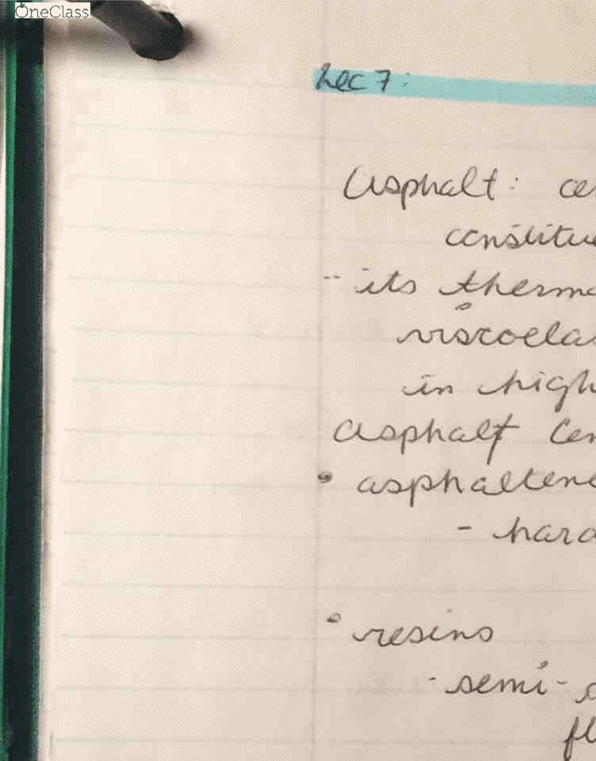 OneClass
Lec 7:
Asphalt: ce
constitue
-- its therm
viscoela
in high
asphalt Cem
• asphaltene
- hard
• resins
- semi-
fl